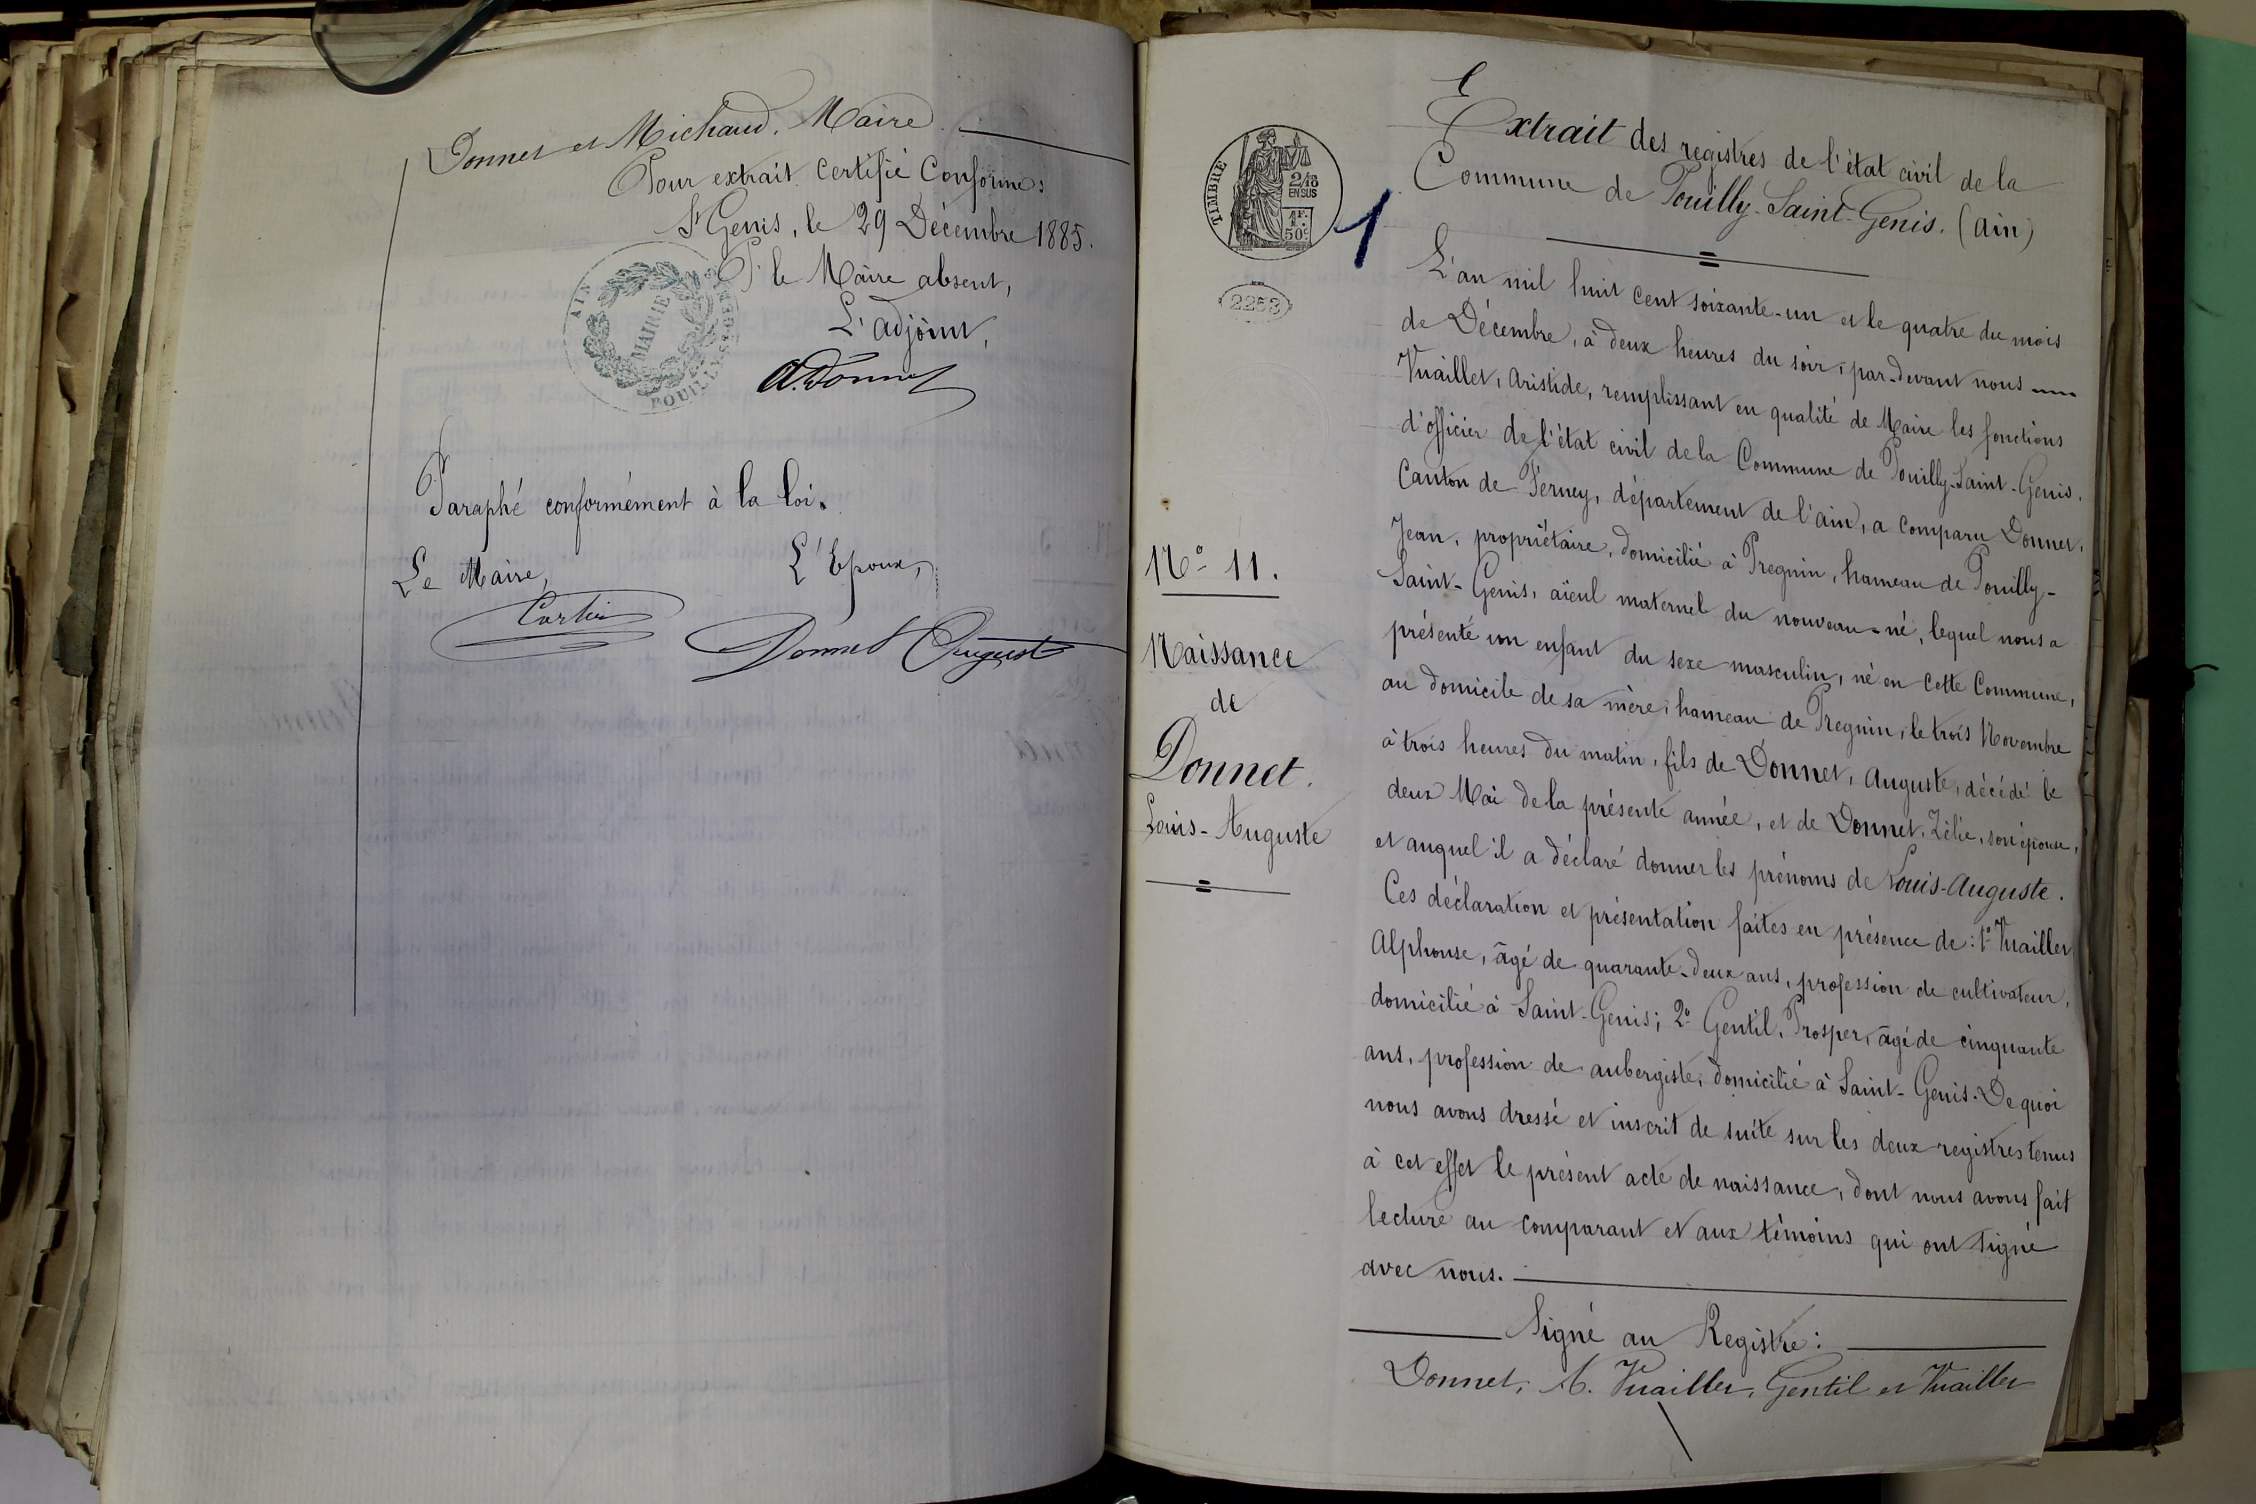 Donnet et Michaud, Maire.
Pour extrait certifié Conforme:
St Genis, le 29 Décembre 1885.
Pr le Maire absent,
L'adjoint,
A. Donnet
AIN
MAIRIE
POUILLY-ST-GENIS
Paraphé conformément à la loi.
Le Maire,
L'Epoux,
Donnet Auguste
TIMBRE
2/10
EN SUS
1F.
50c
2253
1
Extrait des registres de l'état civil de la
Commune de Pouilly-Saint-Genis. (Ain)
N° 11.
Naissance
de
Donnet.
Louis-Auguste
L'an mil huit cent soixante-un et le quatre du mois
de Décembre, à deux heures du soir, par-devant nous
Vuaillet, Aristide, remplissant en qualité de Maire les fonctions
d'officier de l'état civil de la Commune de Pouilly-Saint-Genis.
Canton de Ferney, département de l'ain, a comparu Donnet,
Jean, propriétaire, domicilié à Pregnin, hameau de Pouilly-
Saint-Genis, aïeul maternel du nouveau-né, lequel nous a
présenté un enfant du sexe masculin, né en cette Commune,
au domicile de sa mère, hameau de Pregnin, le trois Novembre
à trois heures du matin, fils de Donnet, Auguste, décédé le
deux Mai de la présente année, et de Donnet, Zélie, son épouse,
et auquel il a déclaré donner les prénoms de Louis-Auguste.
Ces déclaration et présentation faites en présence de: 1° Vuaillet
Alphonse, âgé de quarante-deux ans, profession de cultivateur,
domicilié à Saint-Genis; 2° Gentil, Prosper, âgé de cinquante
ans, profession de aubergiste, domicilié à Saint-Genis. De quoi
nous avons dressé et inscrit de suite sur les deux registres tenus
à cet effet le présent acte de naissance, dont nous avons fait
lecture au comparant et aux témoins qui ont signé
avec nous.
Signé au Registre:
Donnet, A. Vuaillet, Gentil et Vuaillet